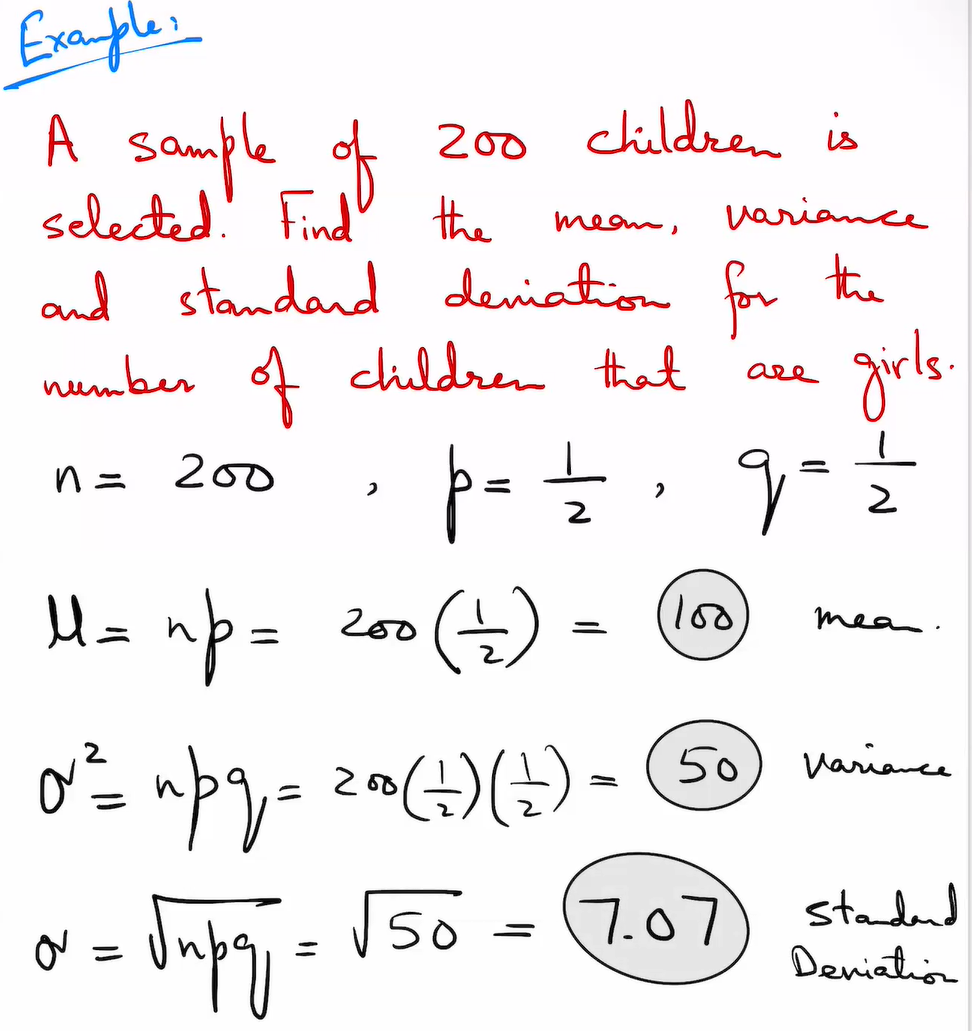 Example:
A sample of 200 children is
selected. Find the mean, variance
and standard deviation for the
number of children that are girls.
n = 200 , p = 1/2 , q = 1/2
μ = np = 200 (1/2) = 100 mean.
σ² = npq = 200 (1/2) (1/2) = 50 variance
σ = √npq = √50 = 7.07 Standard
Deviation